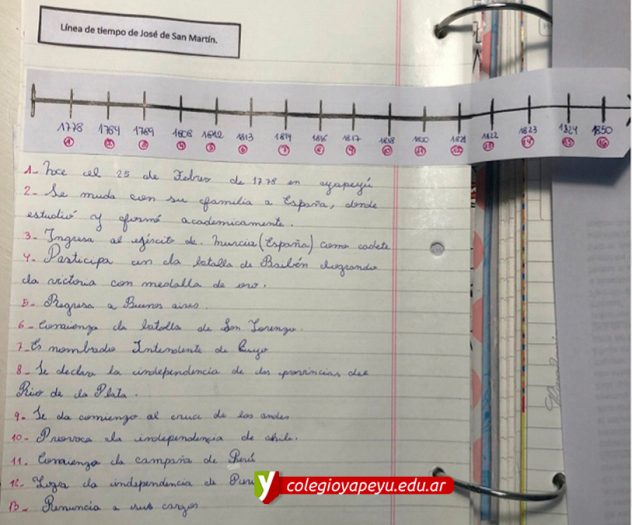 Línea de tiempo de José de San Martín.
1778 1784 1789 1808 1812 1813 1814 1816 1817 1818 1820 1821 1822 1823 1824 1850
1 2 3 4 5 6 7 8 9 10 11 12 13 14 15 16
1- Nace el 25 de Febrero de 1778 en yapeyú
2- Se muda con su familia a España, donde
estudió y formó academicamente.
3- Ingresa al ejército de Murcia (España) como cadete
4- Participa en la batalla de Bailén logrando
la victoria con medalla de oro.
5- Regresa a Buenos aires.
6- Comienza la batalla de San Lorenzo.
7- Es nombrado Intendente de Cuyo
8- Se declara la independencia de las provincias del
Río de la Plata.
9- Se da comienzo al cruce de los andes
10- Provoca la independencia de chile.
11- Comienza la campaña de Perú
12- Logra la independencia de Perú
13- Renuncia a sus cargos
colegioyapeyu.edu.ar